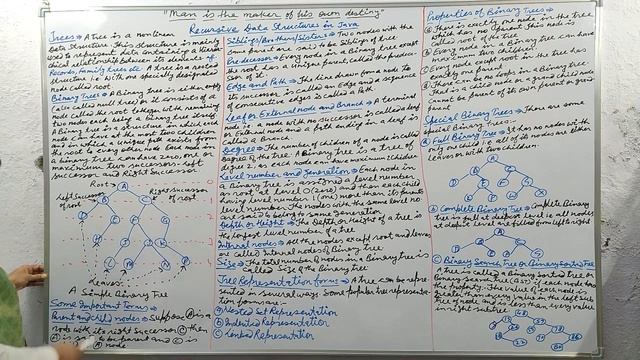 "Man is the maker of his own destiny"
Recursive Data Structures in Java
Trees → A tree is a nonlinear
Data Structure. This structure is mainly
used to represent data containing a hierar-
chical relationship between its elements eg.
Records, family trees etc. A tree is a rooted
structure i.e. with one specially designated
node called root.
Binary Trees → A Binary tree is either empty
(also called null tree) or it consists of a
node called the root together with
two nodes each being a binary tree itself
A Binary tree is a structure in which each
node can have at the most two children
and in which a unique path exists from
the root to every other node. Each node in
a binary tree can have zero, one or
maximum two successors - Left
successor and Right Successor
Root
Left Successor
of root
Right Successor
of root
A
B
C
Leaves
A Simple Binary Tree
Some Important terms
Parent and child nodes → Suppose A is a
node with its right successor C then
A is said to be parent and C is
node
Siblings/Brothers/Sisters → Two nodes with the
same parent are said to be Siblings of tree.
Predecessor → Every node in a Binary tree except
the root has a unique parent, called the predece-
ssor of it.
Edge and Path → The line drawn from a node to
its successor is called an Edge and a sequence
of consecutive edges is called a Path.
Leaf or External node and Branch → A terminal
node i.e. a node with no successor is called leaf
or External node and a path ending in a leaf is
called a Branch.
Degree → The number of children of a node is called
degree of the tree. A Binary tree is a tree of
degree 2, as each node can have maximum 2 children
Level number and Generation → Each node in
a Binary tree is assigned a level number,
as root at level 0 (zero) and then each child
having level number 1 (one) more than its parents
level number. The nodes with the same level no.
are said to belong to same generation
Depth or Height → The Depth or Height of a tree is
the largest level number of a tree
Internal nodes → All the nodes except root and leaves
are called Internal nodes of Binary tree
Size → The total number of nodes in a Binary tree is
called Size of the Binary tree
Tree Representation forms → A tree can be repre-
sented in several ways. Some popular tree representa-
tion forms are:-
(a) Nested Set Representation
(b) Indented Representation
(c) Linked Representation
Properties of Binary Trees →
(a) There is exactly one node in the tree
which has no parent. This node is
called root of the tree
(b) Every node in a Binary tree can have
maximum two children
(c) Every node except root in the tree has
exactly one parent
(d) There can be no loops in a binary tree
That is a child node or a grand child node
cannot be parent of its own parent or grand
parent
Special Binary Trees → There are some
special Binary trees:-
(a) Full Binary Tree → It has no nodes with
only one child i.e. all of its nodes are either
leaves or with two children.
(b) Complete Binary Tree → Complete Binary
tree is full at deepest level i.e. all nodes
at deepest level are filled from left to right.
(c) Binary Search Tree or Binary Sorted Tree
A tree is called a Binary Sorted Tree or
Binary Search Tree (BST) if each node has
the property: The value of each node is
greater than every value in the left sub
tree of node, and less than every value
in right subtree